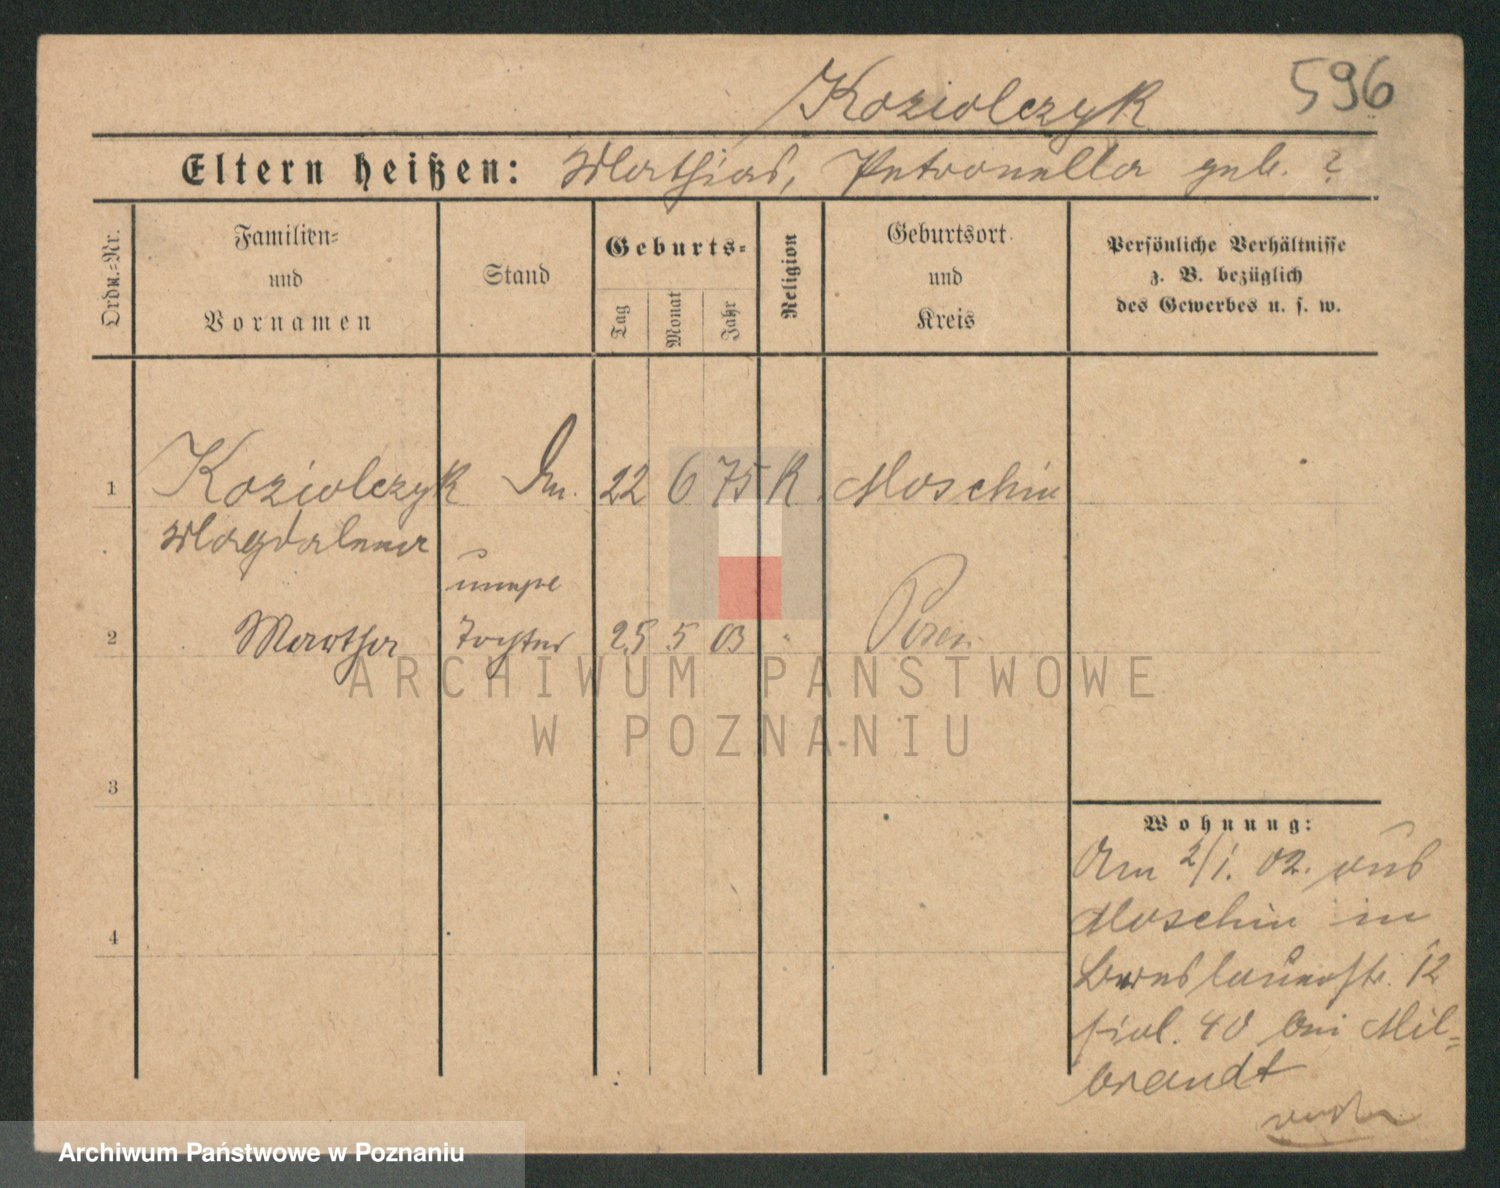 596
Koziolczyk
Eltern heißen: Mathias, Petronella geb. ?
Ordn.-Nr.
Familien-
und
Vornamen
Stand
Geburts-
Tag
Monat
Jahr
Religion
Geburtsort
und
Kreis
Persönliche Verhältnisse
z. B. bezüglich
des Gewerbes u. s. w.
1 Koziolczyk 22 6 75 K. Moschin
Magdalena
unehe
2 Martha Tochter 25 5 03 " Posen
3
4
Wohnung:
Am 2/1. 02. aus
Moschin in
Breslauerstr. 12
40 bei Mil-
brandt
ARCHIWUM PAŃSTWOWE
W POZNANIU
Archiwum Państwowe w Poznaniu